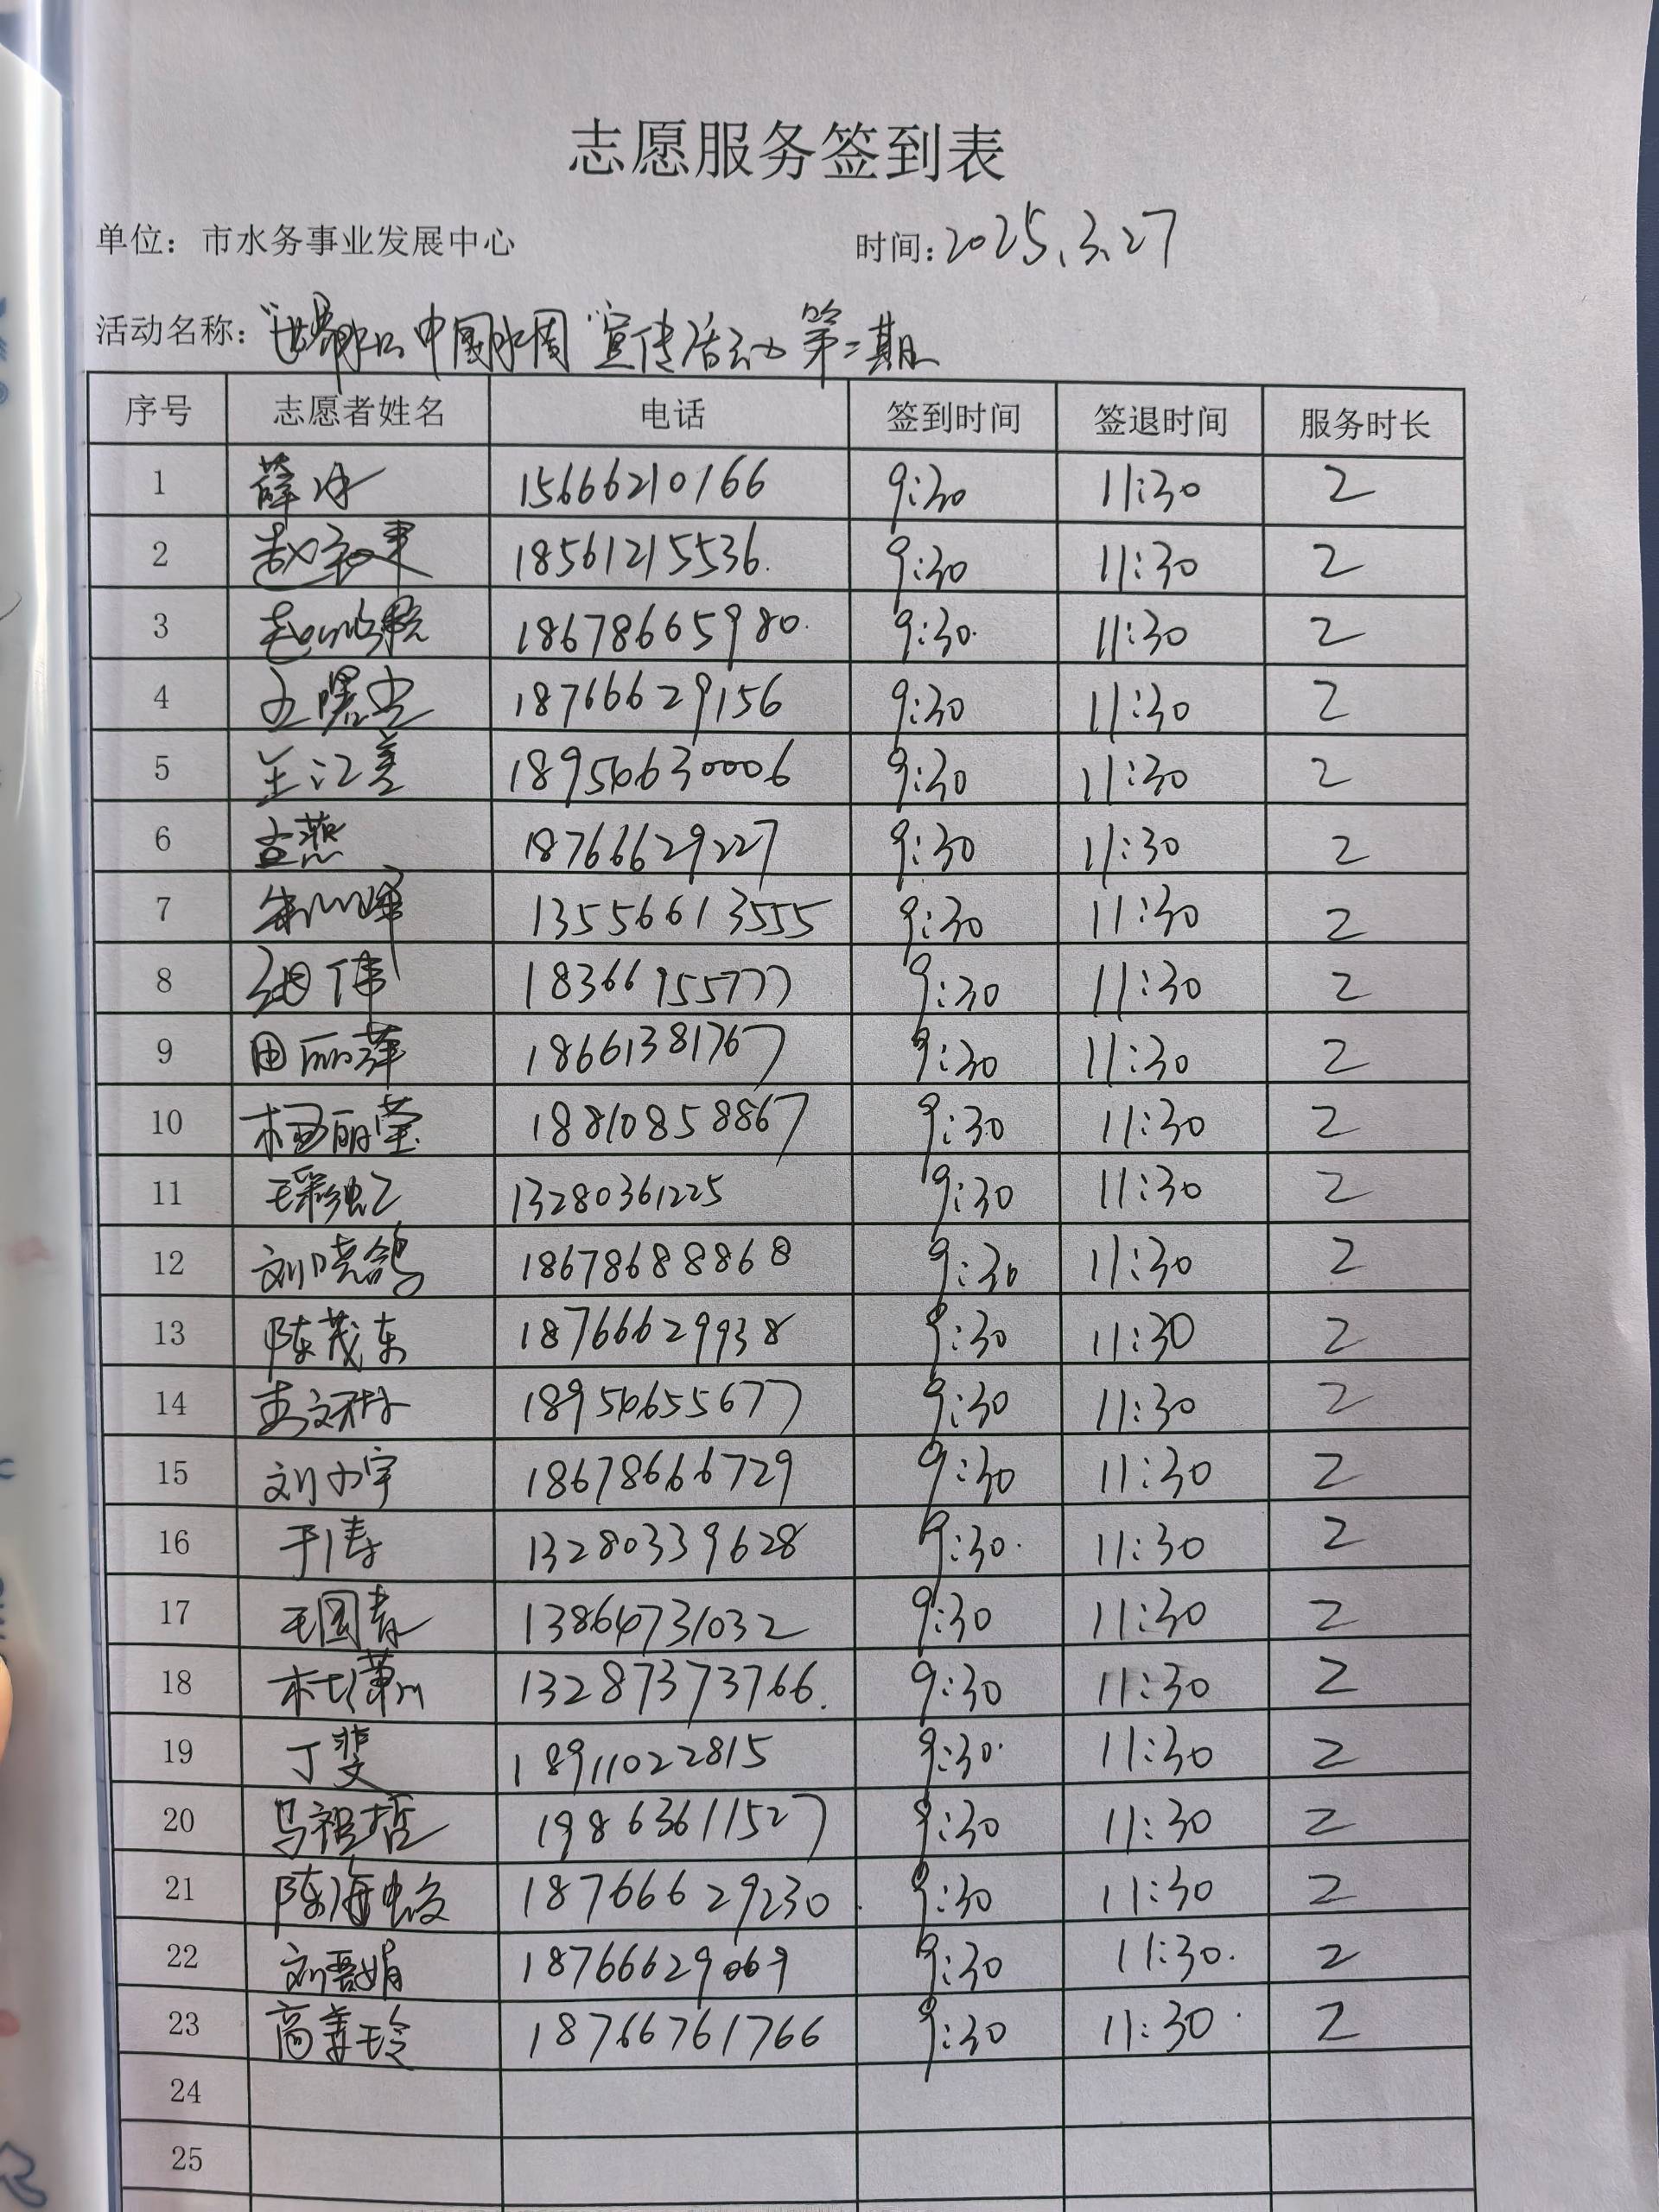 志愿服务签到表
单位：市水务事业发展中心 时间：2025.3.27
活动名称：“世界水日 中国水周”宣传活动 第二期
序号 志愿者姓名 电话 签到时间 签退时间 服务时长
1 薛冰 15666210166 9:30 11:30 2
2 18561215536. 9:30 11:30 2
3 18678665980. 9:30. 11:30 2
4 王曙光 18766629156 9:30 11:30 2
5 王江美 18954630006 9:30 11:30 2
6 孟燕 18766629227 9:30 11:30 2
7 13556613555 9:30 11:30 2
8 张伟 18366955777 9:30 11:30 2
9 田丽萍 18661381767 9:30 11:30 2
10 杨丽莹 18810858867 9:30 11:30 2
11 13280361225 9:30 11:30 2
12 刘晓鸽 18678688868 9:30 11:30 2
13 陈茂东 18766629938 9:30 11:30 2
14 18954655677 9:30 11:30 2
15 刘小宇 18678666729 9:30 11:30 2
16 于涛 13280339628 9:30. 11:30 2
17 王国春 13864731032 9:30 11:30 2
18 13287373766. 9:30 11:30 2
19 丁斐 18911022815 9:30. 11:30 2
20 马祖哲 19863611527 9:30 11:30 2
21 陈海蛟 18766629230. 9:30 11:30 2
22 18766629069 9:30 11:30. 2
23 高美玲 18766761766 9:30 11:30. 2
24
25